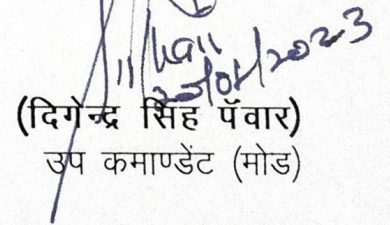 20/01/2023
(दिगेन्द्र सिंह पॅवार)
उप कमाण्डेंट (मोड)